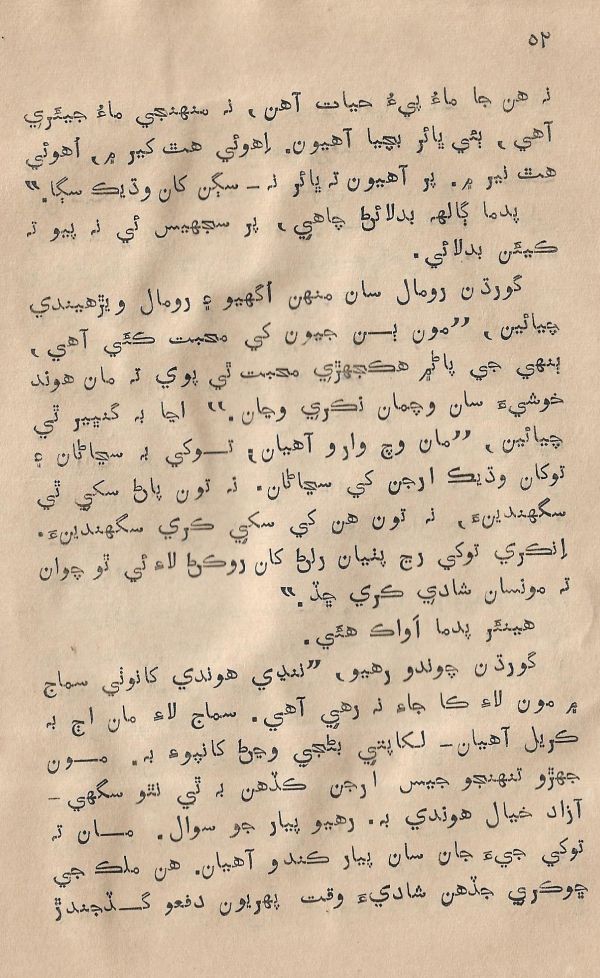 ۵۲
نہ هن جا ماءُ پيءُ حيات آهن، نہ منهنجي ماءُ جيئري
آهي، ٻئي ڀائر بچيا آهيون. اِهوئي هٿ کير ۾، اُهوئي
هٿ نير ۾. پر آهيون تہ ڀائر نہ – سڳن کان وڌيڪ سڳا.“
پدما ڳالهہ بدلائڻ چاهي، پر سجهيس ئي نہ پيو تہ
ڪيئن بدلائي.
گورڌن رومال سان منهن اُگهيو ۽ رومال ويڙهيندي
چيائين، ”مون ٻن جيون کي محبت ڪئي آهي،
ٻنهي جي پاڻ ۾ هڪجهڙي محبت ٿي پوي تہ مان هوند
خوشيءَ سان وچمان نڪري وڃان.“ اڃا بہ گنڀير ٿي
چيائين، ”مان وچ وارو آهيان، توکي بہ سڃاڻان ۽
توکان وڌيڪ ارجن کي سڃاڻان. نہ تون پاڻ سکي ٿي
سگهندينءَ، نہ تون هن کي سکي ڪري سگهندينءَ.
اِنڪري توکي رڃ پٺيان رلڻ کان روڪڻ لاءِ ئي ٿو چوان
تہ مونسان شادي ڪري ڇڏ.“
هينئر پدما اَواڪ هئي.
گورڌن چوندو رهيو، ”ننڍي هوندي کانوٺي سماج
۾ مون لاءِ ڪا جاءِ نہ رهي آهي. سماج لاءِ مان اڄ بہ
ڪريل آهيان – لکاپتي بڻجي وڃڻ کانپوءِ بہ. مون
جهڙو تنهنجو جيس ارجن ڪڏهن بہ ٿي نٿو سگهي –
آزاد خيال هوندي بہ. رهيو پيار جو سوال. مان تہ
توکي جيءَ جان سان پيار ڪندو آهيان. هن ملڪ جي
ڇوڪري جڏهن شاديءَ وقت پهريون دفعو گڏجندڙ